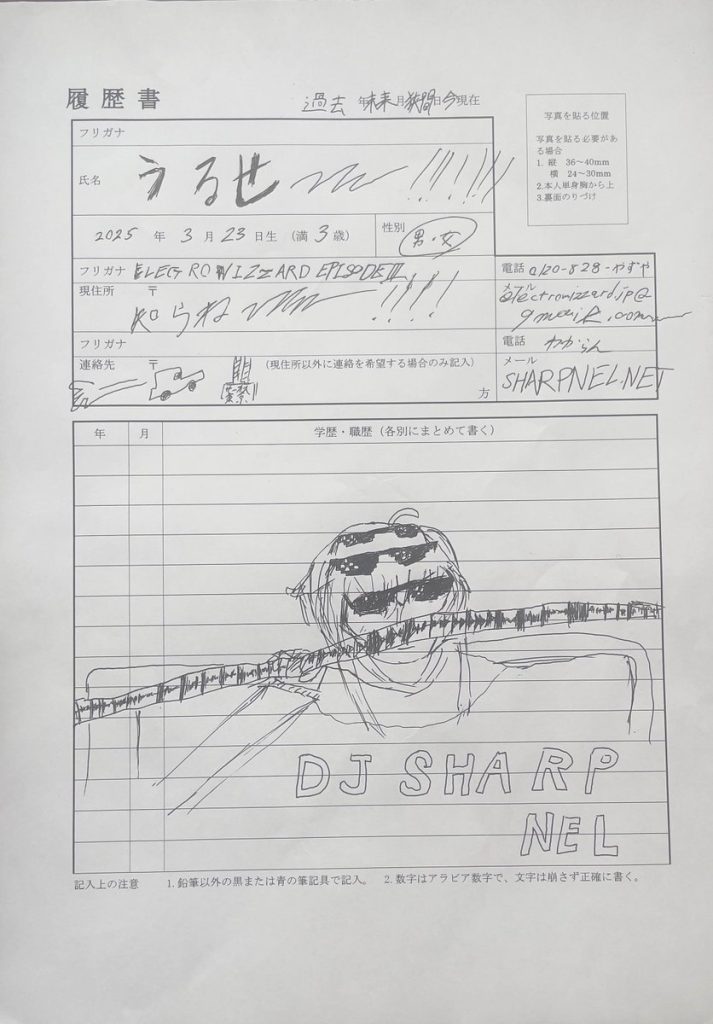 履歴書
過去 年 未来 月 狭間 日 今 現在
写真を貼る位置
写真を貼る必要があ
る場合
1. 縦 36～40mm
横 24～30mm
2.本人単身胸から上
3.裏面のりづけ
フリガナ
氏名 うるせ〜〜!!!!!!
2025 年 3 月 23 日生 (満 3 歳) 性別 男・女
フリガナ ELECTROWIZZARD EPISODE III
電話 0120-828-やずや
現住所 〒
知らね〜〜!!!!
メール
electrowizzard.jp@
gmail.com
フリガナ
電話 わからん
連絡先 〒 (現住所以外に連絡を希望する場合のみ記入)
方
メール
SHARPNEL.NET
年 月 学歴・職歴 (各別にまとめて書く)
DJ SHARP
NEL
記入上の注意 1.鉛筆以外の黒または青の筆記具で記入。 2.数字はアラビア数字で、文字は崩さず正確に書く。